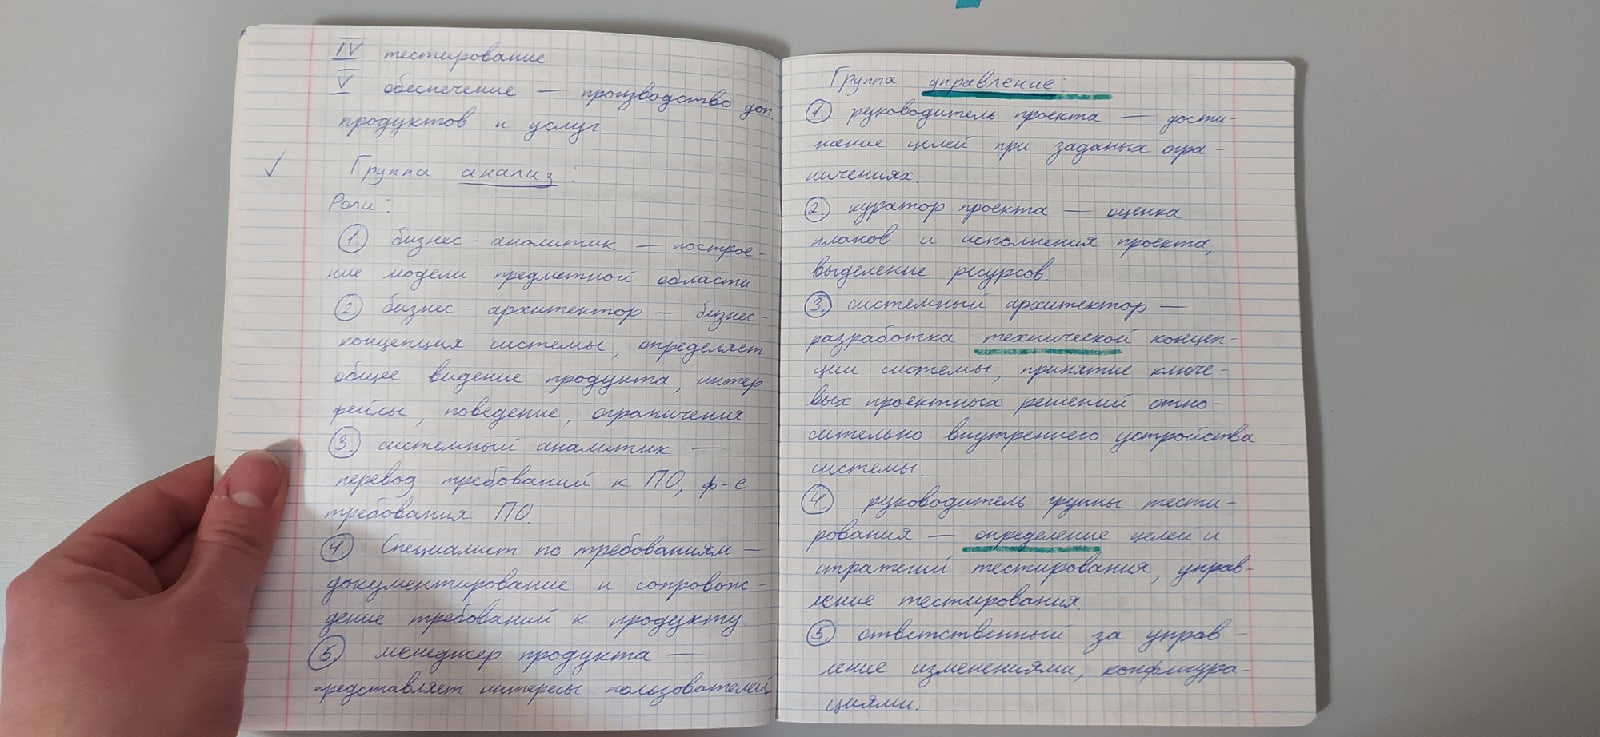 IV тестирование
V обеспечение — производство доп.
продуктов и услуг.
Группа анализ:
Роли:
1. бизнес-аналитик — построе-
ние модели предметной области
2 бизнес-архитектор — бизнес-
концепция системы, определяет
общее видение продукта, интер
фейсы, поведение, ограничения
3. системный аналитик —
перевод требований к ПО, ф-е
требования ПО.
4. Специалист по требованиям —
документирование и сопровож-
дение требований к продукту.
5. менеджер продукта —
представляет интересы пользователей
Группа управление:
1. руководитель проекта — дости-
жение целей при заданых огра-
ничениях.
2. куратор проекта — оценка
планов и исполнения проекта,
выделение ресурсов.
3. системный архитектор —
разработка технической концеп-
ции системы, принятие ключе-
вых проектных решений отно-
сительно внутреннего устройства
системы.
4 руководитель группы тести-
рования — определение целей и
стратегий тестирования, управ-
ление тестирования.
5. ответственный за управ-
ление изменениями, конфигура-
циями.